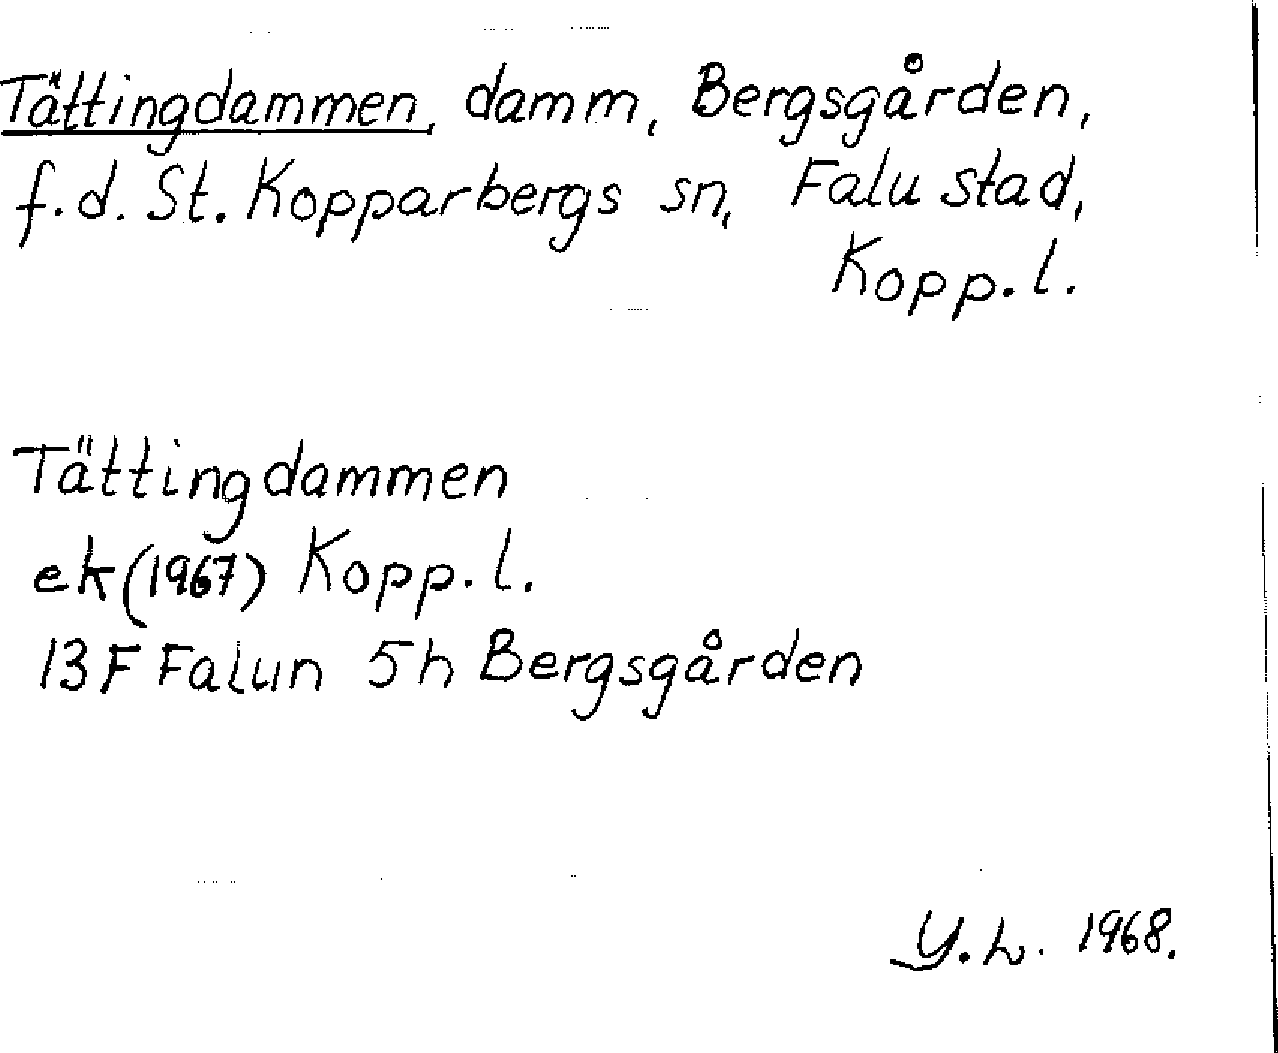 Tättingdammen, damm, Bergsgården,
f.d. St. Kopparbergs sn, Falu stad,
Kopp. l.
Tättingdammen
ek (1967) Kopp. l.
13F Falun 5h Bergsgården
Y.L. 1968.